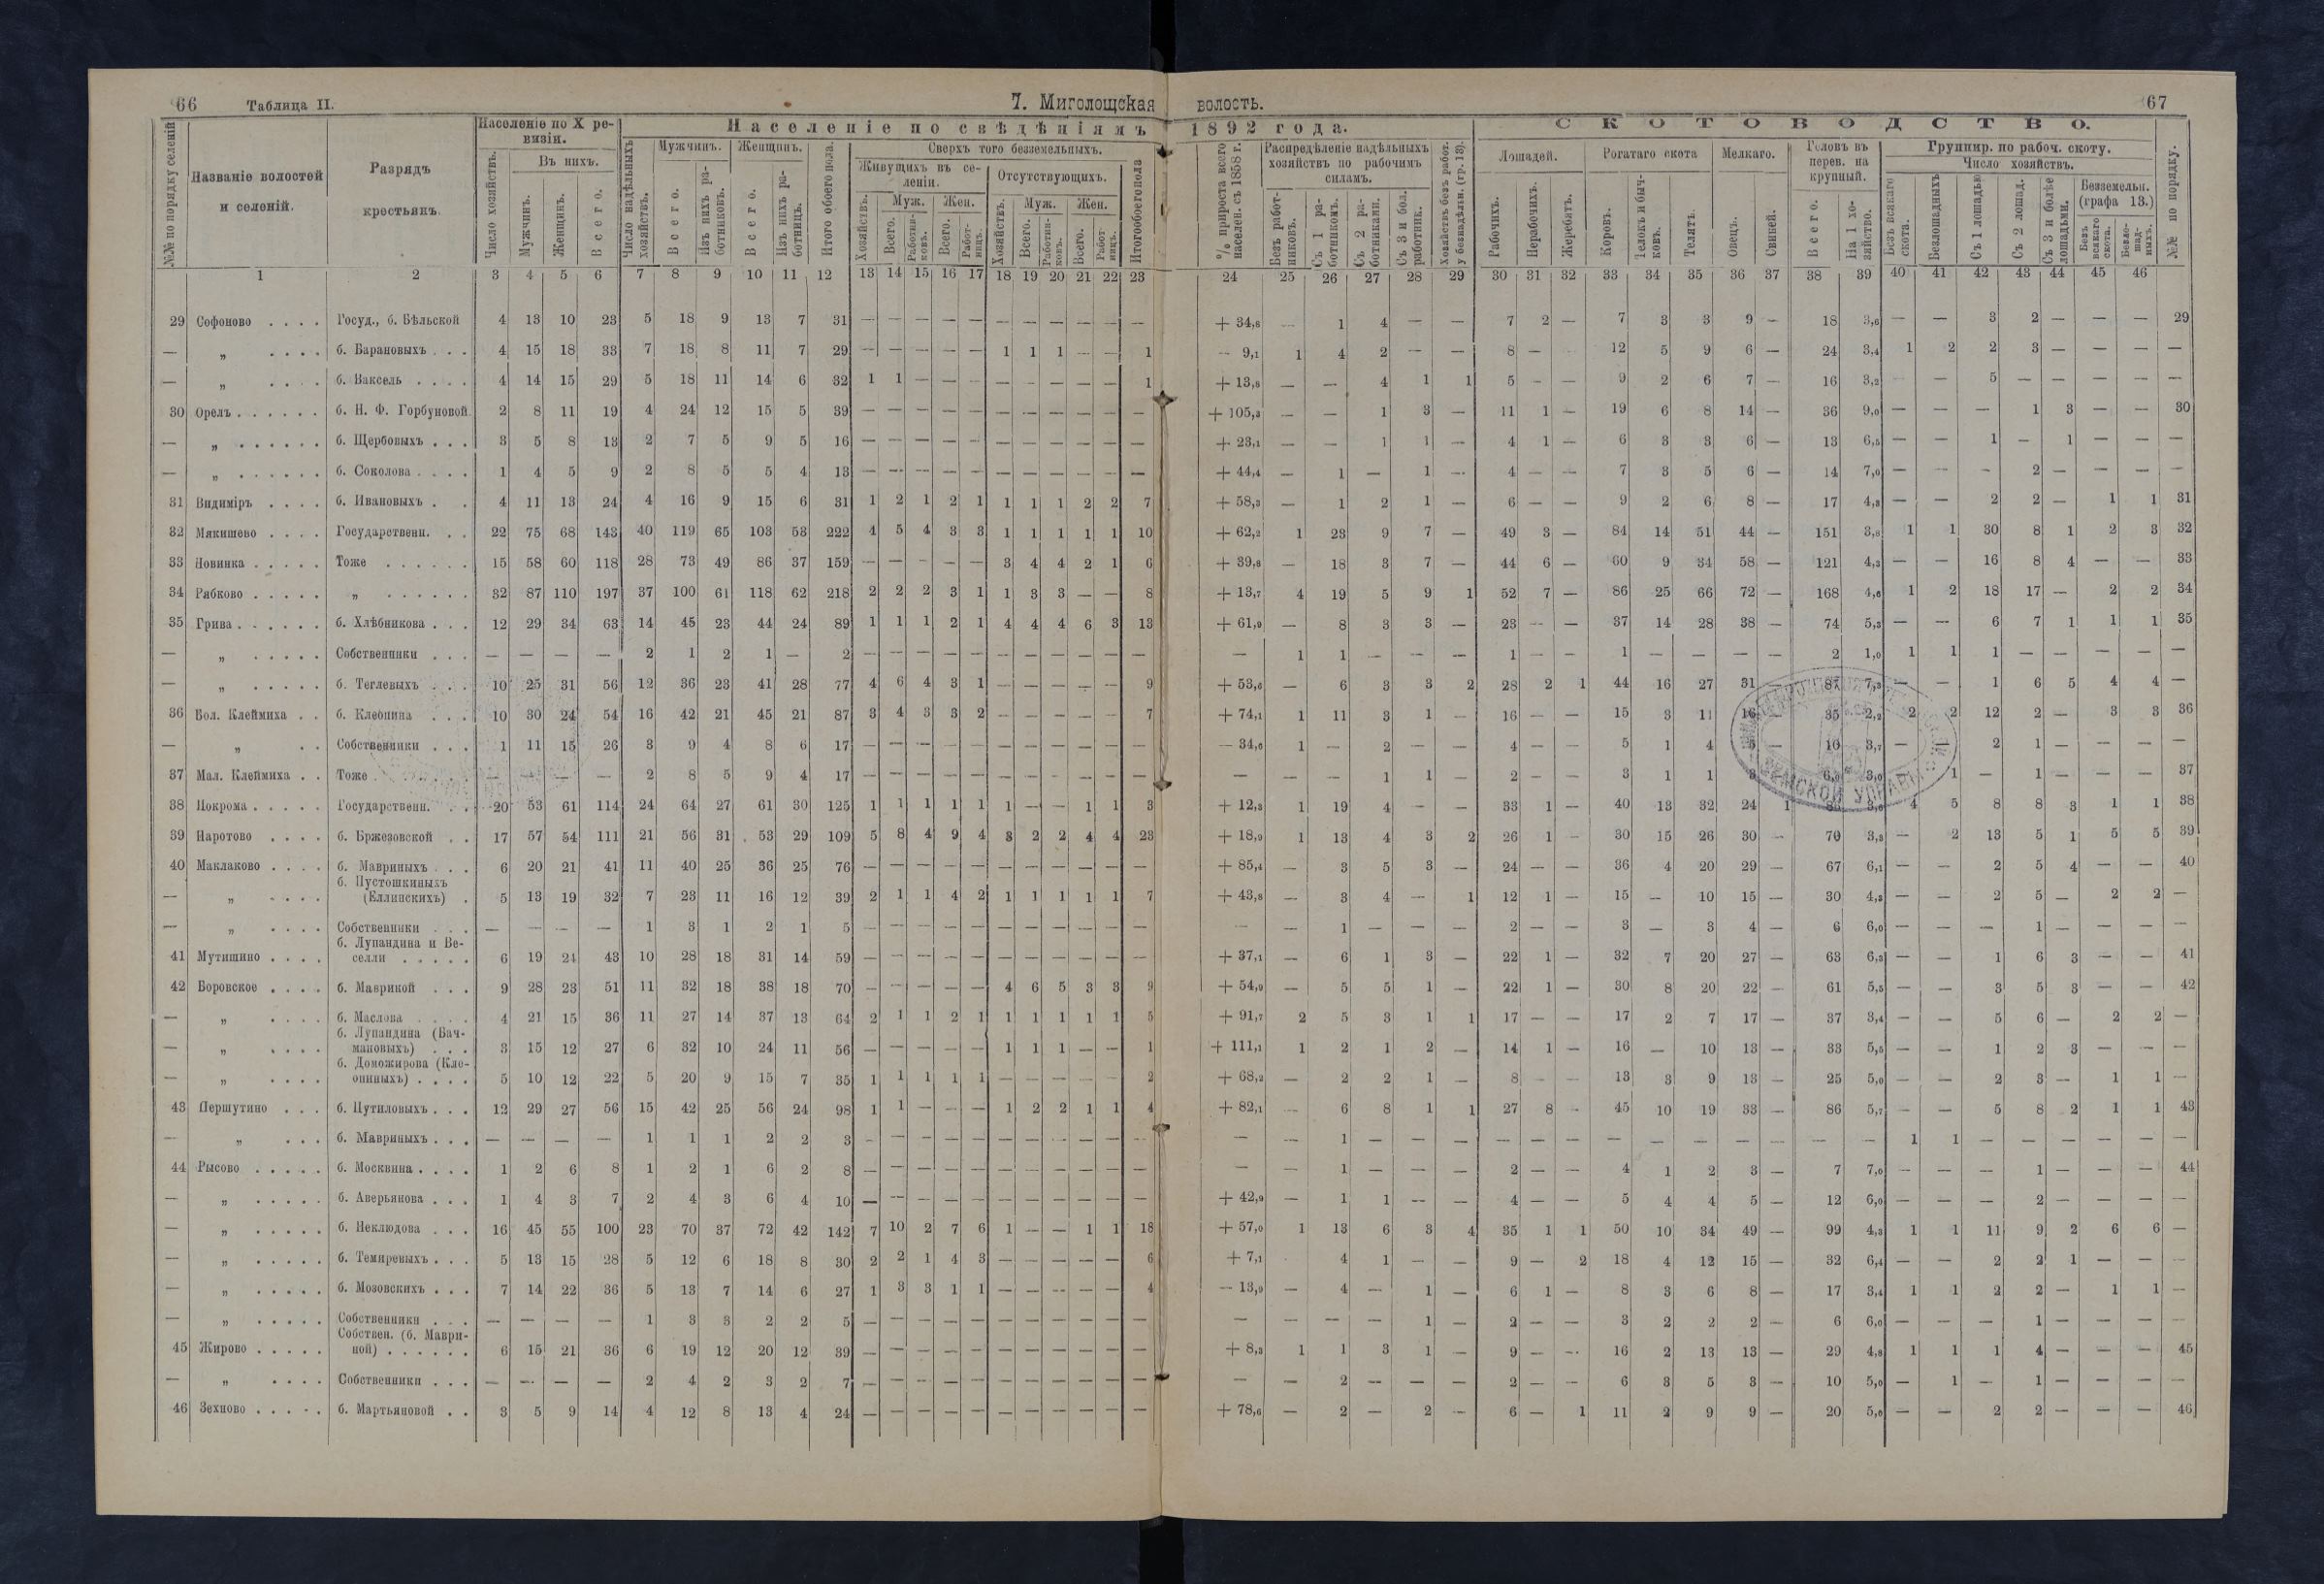 66 Таблица II. 7. Миголощская волость. 67
№№ по порядку селеній
Названіе волостей и селеній.
Разрядъ крестьянъ.
Населеніе по X ревизіи.
Число хозяйствъ.
Въ нихъ.
Мужчинъ.
Женщинъ.
Всего.
Населеніе по свѣдѣніямъ 1892 года.
Число надѣльныхъ хозяйствъ.
Мужчинъ.
Всего.
Изъ нихъ работниковъ.
Женщинъ.
Всего.
Изъ нихъ работницъ.
Итого обоего пола.
Сверхъ того безземельныхъ.
Живущихъ въ селеніи.
Хозяйствъ.
Муж.
Всего.
Работниковъ.
Жен.
Всего.
Работницъ.
Отсутствующихъ.
Хозяйствъ.
Муж.
Всего.
Работниковъ.
Жен.
Всего.
Работницъ.
Итого обоего пола
% прироста всего населен. съ 1858 г.
Распредѣленіе надѣльныхъ хозяйствъ по рабочимъ силамъ.
Безъ работниковъ.
Съ 1 работникомъ.
Съ 2 работниками.
Съ 3 и бол. работник.
Хозяйствъ безъ работ. у безнадѣльн. (гр. 13).
СКОТОВОДСТВО.
Лошадей.
Рабочихъ.
Нерабочихъ.
Жеребятъ.
Рогатаго скота
Коровъ.
Телокъ и бычковъ.
Телятъ.
Мелкаго.
Овецъ.
Свиней.
Головъ въ перев. на крупный.
Всего.
На 1 хозяйство.
Группир. по рабоч. скоту.
Число хозяйствъ.
Безъ всякаго скота.
Безлошадныхъ
Съ 1 лошадью
Съ 2 лошад.
Съ 3 и болѣе лошадьми.
Безземельн. (графа 13.)
Безъ всякаго скота.
Безлошадныхъ.
№№ по порядку.
1 2 3 4 5 6 7 8 9 10 11 12 13 14 15 16 17 18 19 20 21 22 23 24 25 26 27 28 29 30 31 32 33 34 35 36 37 38 39 40 41 42 43 44 45 46
29 Софоново . . . . Госуд., б. Бѣльской 4 13 10 23 5 18 9 13 7 31 — — — — — — — — — — — + 34,8 — 1 4 — — 7 2 — 7 3 3 9 — 18 3,6 — — 3 2 — — — 29
— „ . . . . б. Барановыхъ . . . 4 15 18 33 7 18 8 11 7 29 — — — — — 1 1 1 — — 1 — 9,1 1 4 2 — — 8 — — 12 5 9 6 — 24 3,4 1 2 2 3 — — — —
— „ . . . . б. Ваксель . . . . 4 14 15 29 5 18 11 14 6 32 1 1 — — — — — — — — 1 + 13,8 — — 4 1 1 5 — — 9 2 6 7 — 16 3,2 — — 5 — — — — —
30 Орелъ . . . . . . б. Н. Ф. Горбуновой 2 8 11 19 4 24 12 15 5 39 — — — — — — — — — — — + 105,3 — — 1 3 — 11 1 — 19 6 8 14 — 36 9,0 — — — 1 3 — — 30
— „ . . . . . . б. Щербовыхъ . . . 3 5 8 13 2 7 5 9 5 16 — — — — — — — — — — — + 23,1 — — 1 1 — 4 1 — 6 3 3 6 — 13 6,5 — — 1 — 1 — — —
— „ . . . . . . б. Соколова . . . . 1 4 5 9 2 8 5 5 4 13 — — — — — — — — — — — + 44,4 — 1 — 1 — 4 — — 7 3 5 6 — 14 7,0 — — — 2 — — — —
31 Видиміръ . . . . б. Ивановыхъ . . 4 11 13 24 4 16 9 15 6 31 1 2 1 2 1 1 1 1 2 2 7 + 58,3 — 1 2 1 — 6 — — 9 2 6 8 — 17 4,3 — — 2 2 — 1 1 31
32 Мякишево . . . . Государственн. . . 22 75 68 143 40 119 65 103 53 222 4 5 4 3 3 1 1 1 1 1 10 + 62,2 1 23 9 7 — 49 3 — 84 14 51 44 — 151 3,8 1 1 30 8 1 2 3 32
33 Новинка . . . . . Тоже . . . . . . 15 58 60 118 28 73 49 86 37 159 — — — — — 3 4 4 2 1 6 + 39,8 — 18 3 7 — 44 6 — 60 9 34 58 — 121 4,3 — — 16 8 4 — — 33
34 Рябково . . . . . „ . . . . . . 32 87 110 197 37 100 61 118 62 218 2 2 2 3 1 1 3 3 — — 8 + 13,7 4 19 5 9 1 52 7 — 86 25 66 72 — 168 4,6 1 2 18 17 — 2 2 34
35 Грива . . . . . . б. Хлѣбникова . . . 12 29 34 63 14 45 23 44 24 89 1 1 1 2 1 4 4 4 6 3 13 + 61,9 — 8 3 3 — 23 — — 37 14 28 38 — 74 5,3 — — 6 7 1 1 1 35
— „ . . . . . Собственники . . . — — — — 2 1 2 1 — 2 — — — — — — — — — — — — 1 1 — — — 1 — — 1 — — — — 2 1,0 1 1 1 — — — — —
— „ . . . . . б. Теглевыхъ . . . 10 25 31 56 12 36 23 41 28 77 4 6 4 3 1 — — — — — 9 + 53,6 — 6 3 3 2 28 2 1 44 16 27 31 — 87 7,3 — — 1 6 5 4 4 —
36 Бол. Клеймиха . . б. Клеопина . . . 10 30 24 54 16 42 21 45 21 87 3 4 3 3 2 — — — — — 7 + 74,1 1 11 3 1 — 16 — — 15 3 11 16 — 35 2,2 2 2 12 2 — 3 3 36
— „ . . Собственники . . . 1 11 15 26 3 9 4 8 6 17 — — — — — — — — — — — — 34,6 1 — 2 — — 4 — — 5 1 4 — 10 3,7 — — 2 1 — — — —
37 Мал. Клеймиха . . Тоже . . . . . . — — — — 2 8 5 9 4 17 — — — — — — — — — — — — — — 1 1 — 2 — — 3 1 1 3 — 3,0 — 1 — 1 — — — 37
38 Покрома . . . . . Государственн. . . 20 53 61 114 24 64 27 61 30 125 1 1 1 1 1 1 — — 1 1 3 + 12,3 1 19 4 — — 33 1 — 40 13 32 24 1 3,6 4 5 8 8 3 1 1 38
39 Наротово . . . . б. Бржезовской . . 17 57 54 111 21 56 31 53 29 109 5 8 4 9 4 8 2 2 4 4 23 + 18,9 1 13 4 3 2 26 1 — 30 15 26 30 — 70 3,3 — 2 13 5 1 5 5 39
40 Маклаково . . . . б. Мавриныхъ . . . 6 20 21 41 11 40 25 36 25 76 — — — — — — — — — — — + 85,4 — 3 5 3 — 24 — — 36 4 20 29 — 67 6,1 — — 2 5 4 — — 40
— „ . . . . б. Пустошкиныхъ
(Еллинскихъ) . 5 13 19 32 7 23 11 16 12 39 2 1 1 4 2 1 1 1 1 1 7 + 43,8 — 3 4 — 1 12 1 — 15 — 10 15 — 30 4,3 — — 2 5 — 2 2 —
— „ . . . . Собственники . . . — — — — 1 3 1 2 1 5 — — — — — — — — — — — — — 1 — — — 2 — — 3 — 3 4 — 6 6,0 — — — 1 — — — —
б. Лупандина и Ве-
41 Мутишино . . . . селли . . . . . 6 19 24 43 10 28 18 31 14 59 — — — — — — — — — — — + 37,1 — 6 1 3 — 22 1 — 32 7 20 27 — 63 6,3 — — 1 6 3 — — 41
42 Боровское . . . . б. Мавриной . . . 9 28 23 51 11 32 18 38 18 70 — — — — — 4 6 5 3 3 9 + 54,9 — 5 5 1 — 22 1 — 30 8 20 22 — 61 5,5 — — 3 5 3 — — 42
— „ . . . . б. Маслова . . . . 4 21 15 36 11 27 14 37 13 64 2 1 1 2 1 1 1 1 1 1 5 + 91,7 2 5 3 1 1 17 — — 17 2 7 17 — 37 3,4 — — 5 6 — 2 2 —
б. Лупандина (Бач-
— „ . . . . мановыхъ) . . . 3 15 12 27 6 32 10 24 11 56 — — — — — 1 1 1 — — 1 + 111,1 1 2 1 2 — 14 1 — 16 — 10 13 — 33 5,5 — — 1 2 3 — — —
б. Доможирова (Кле-
— „ . . . . опиныхъ) . . . . 5 10 12 22 5 20 9 15 7 35 1 1 1 1 1 — — — — — 2 + 68,2 — 2 2 1 — 8 — — 13 3 9 13 — 25 5,0 — — 2 3 — 1 1 —
43 Першутино . . . б. Путиловыхъ . . . 12 29 27 56 15 42 25 56 24 98 1 1 — — — 1 2 2 1 1 4 + 82,1 — 6 8 1 1 27 8 — 45 10 19 33 — 86 5,7 — — 5 8 2 1 1 43
— „ . . . б. Мавриныхъ . . . — — — — 1 1 1 2 2 3 — — — — — — — — — — — — — 1 — — — — — — — — — — — — — 1 1 — — — — — —
44 Рысово . . . . . б. Москвина . . . . 1 2 6 8 1 2 1 6 2 8 — — — — — — — — — — — — — 1 — — — 2 — — 4 1 2 3 — 7 7,0 — — — 1 — — — 44
— „ . . . . . б. Аверьянова . . . 1 4 3 7 2 4 3 6 4 10 — — — — — — — — — — — + 42,9 — 1 1 — — 4 — — 5 4 4 5 — 12 6,0 — — — 2 — — — —
— „ . . . . . б. Неклюдова . . . 16 45 55 100 23 70 37 72 42 142 7 10 2 7 6 1 — — 1 1 18 + 57,0 1 13 6 3 4 35 1 1 50 10 34 49 — 99 4,3 1 1 11 9 2 6 6 —
— „ . . . . . б. Темяревыхъ . . . 5 13 15 28 5 12 6 18 8 30 2 2 1 4 3 — — — — — 6 + 7,1 4 1 — — 9 — 2 18 4 12 15 — 32 6,4 — — 2 2 1 — — —
— „ . . . . . б. Мозовскихъ . . . 7 14 22 36 5 13 7 14 6 27 1 3 3 1 1 — — — — — 4 — 13,9 — 4 — 1 — 6 1 — 8 3 6 8 — 17 3,4 1 1 2 2 — 1 1 —
— „ . . . . . Собственники . . . — — — — 1 3 3 2 2 5 — — — — — — — — — — — — — — — 1 — 2 — — 3 2 2 2 — 6 6,0 — — — 1 — — — —
Собствен. (б. Маври-
45 Жирово . . . . . ной) . . . . . . 6 15 21 36 6 19 12 20 12 39 — — — — — — — — — — — + 8,3 1 1 3 1 — 9 — — 16 2 13 13 — 29 4,8 1 1 1 4 — — — 45
— „ . . . . Собственники . . . — — — — 2 4 2 3 2 7 — — — — — — — — — — — — — 2 — — — 2 — — 6 3 5 3 — 10 5,0 — 1 — 1 — — — —
46 Зехново . . . . . б. Мартьяновой . . 3 5 9 14 4 12 8 13 4 24 — — — — — — — — — — — + 78,6 — 2 — 2 — 6 — 1 11 2 9 9 — 20 5,0 — — 2 2 — — — 46